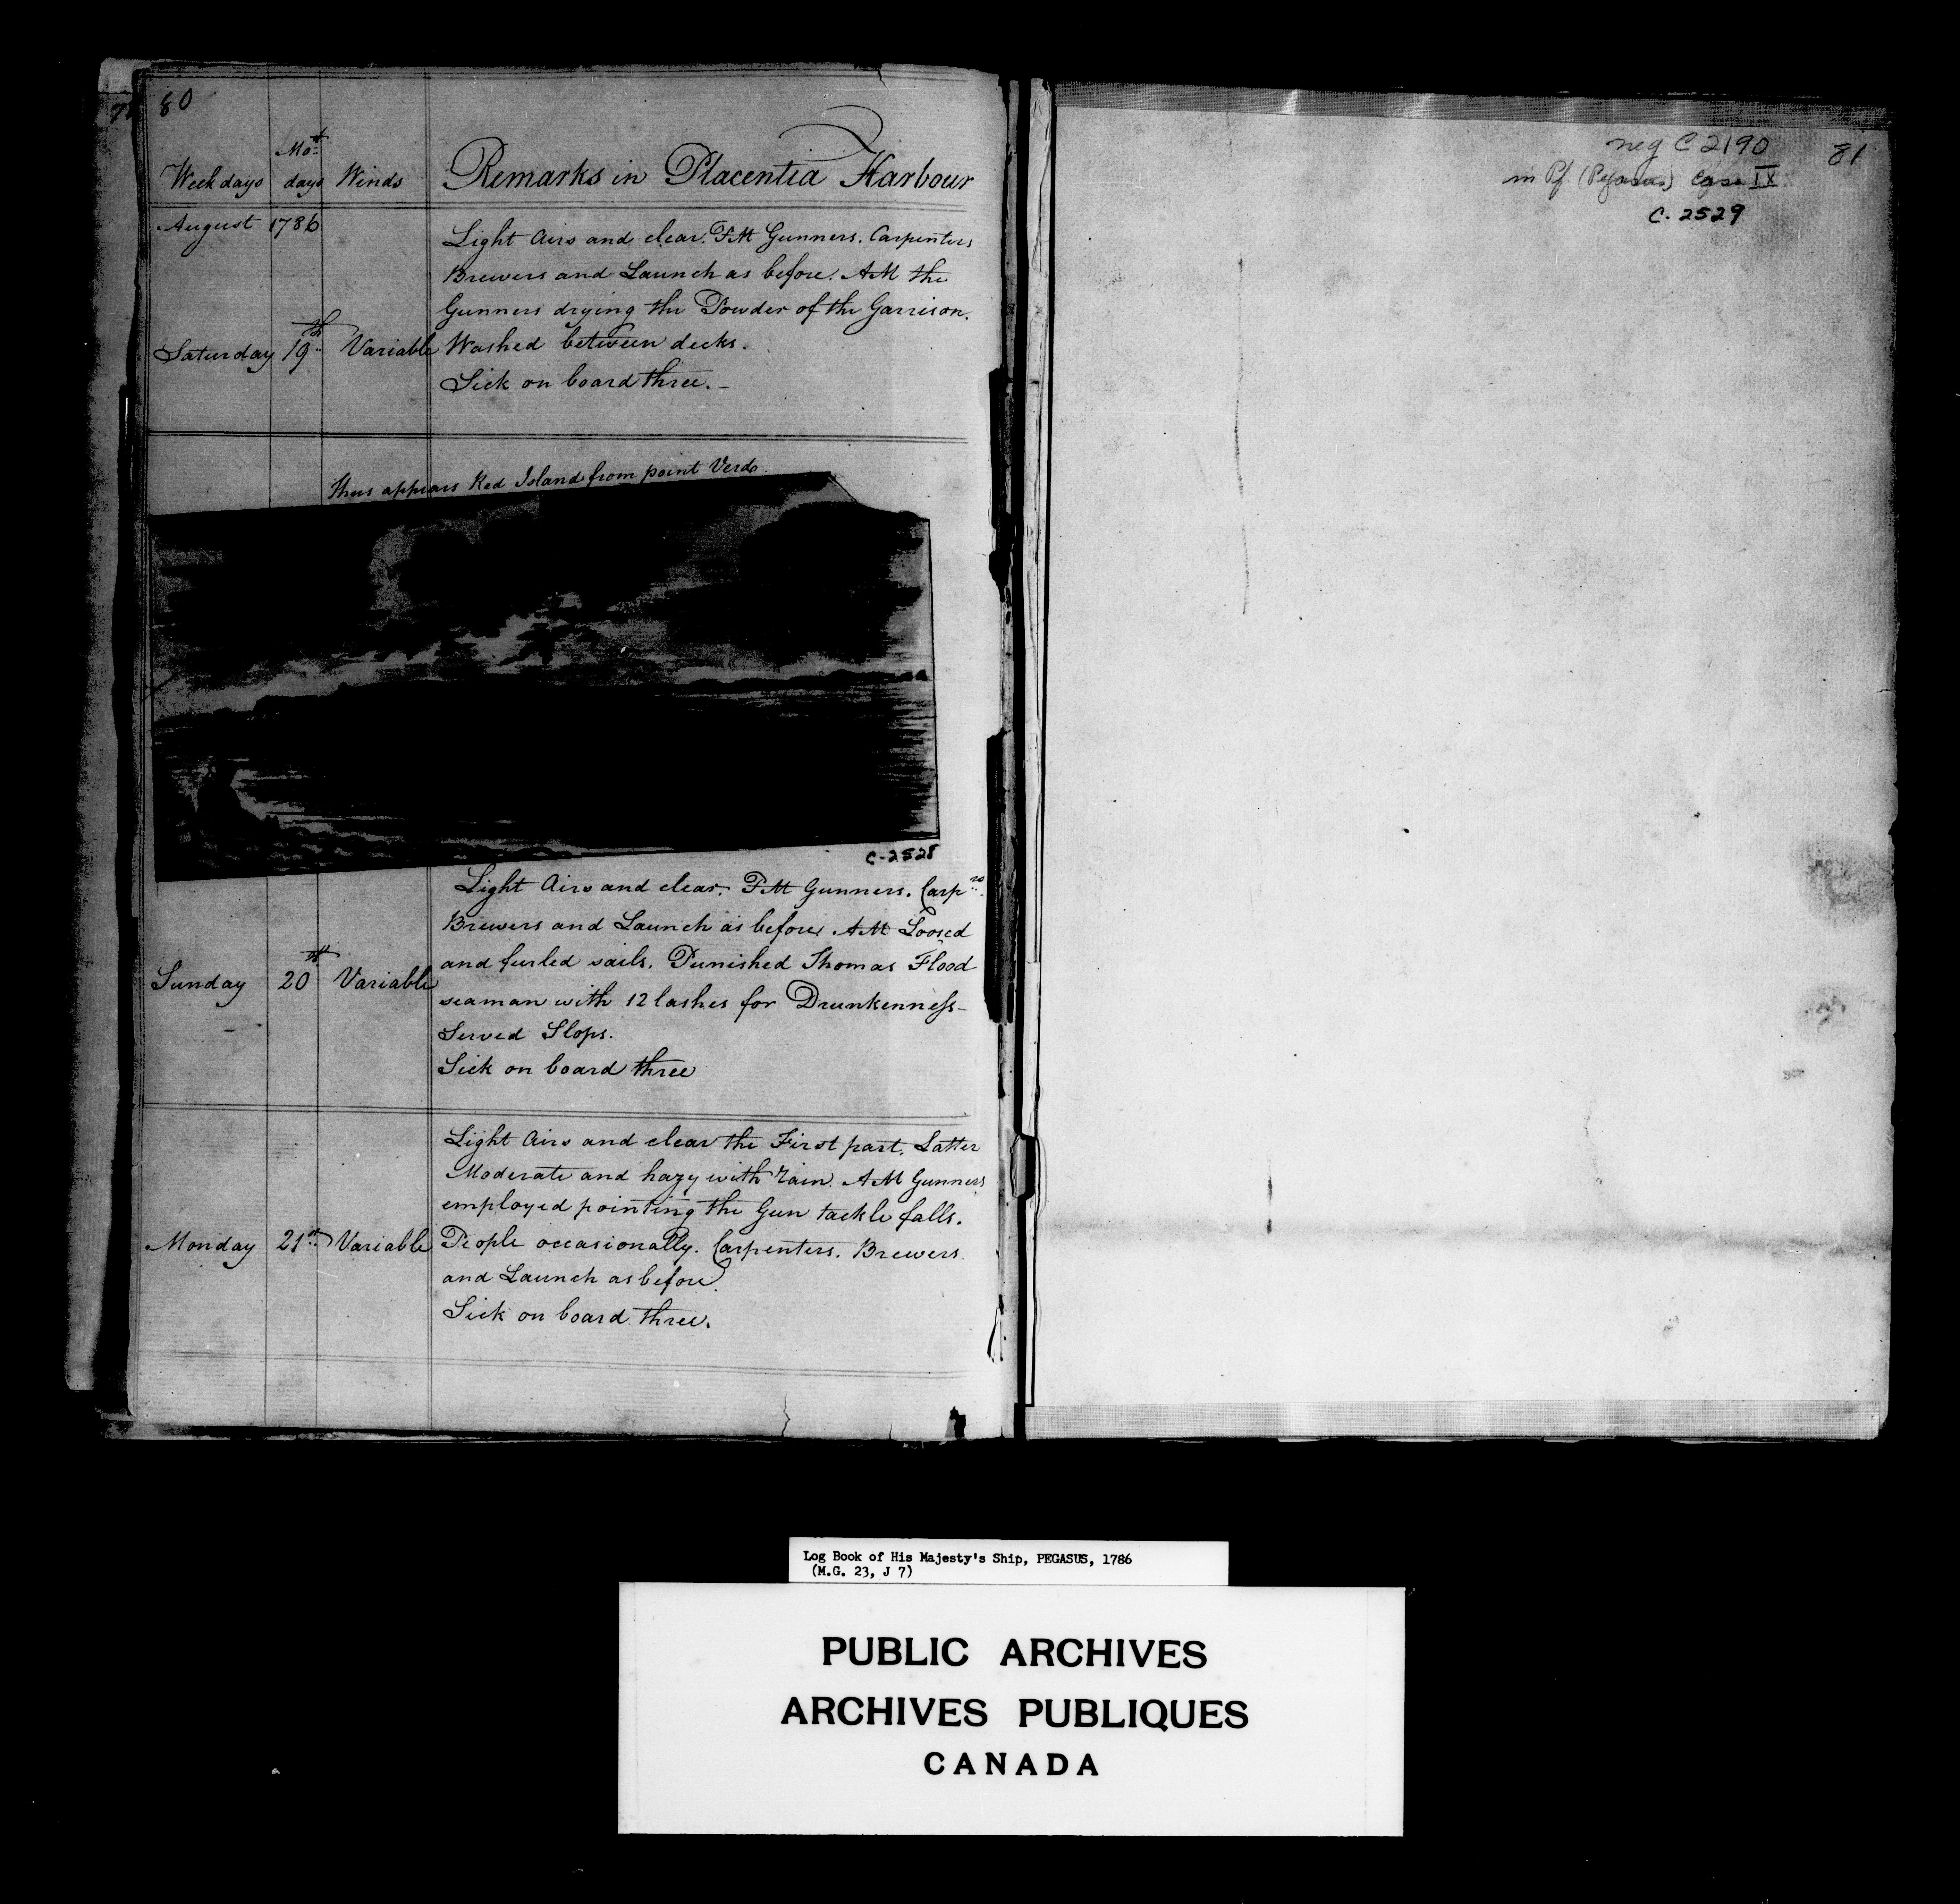 80
Week days Mo.th days Winds Remarks in Placentia Harbour
August 1786
Light Airs and clear. PM Gunners. Carpenters
Brewers and Launch as before. AM the
Gunners drying the Powder of the Garrison.
Saturday 19th Variable Washed between decks.
Sick on board three. -
Thus appears Red Island from point Verde.
C-2528
Light Airs and clear. PM Gunners. Carprs
Brewers and Launch as before. AM Loosed
and furled sails. Punished Thomas Flood
Sunday 20th Variable
seaman with 12 lashes for Drunkenness -
Served Slops.
Sick on board three
Light Airs and clear the First part. Latter
Moderate and hazy with rain. AM Gunners
employed pointing the Gun tackle falls.
Monday 21st Variable People occasionally. Carpenters. Brewers
and Launch as before.
Sick on board three.
neg C 2190
81
in Pf (Pegasus) Case IX
C-2529
Log Book of His Majesty's Ship, PEGASUS, 1786
(M.G. 23, J 7)
PUBLIC ARCHIVES
ARCHIVES PUBLIQUES
CANADA